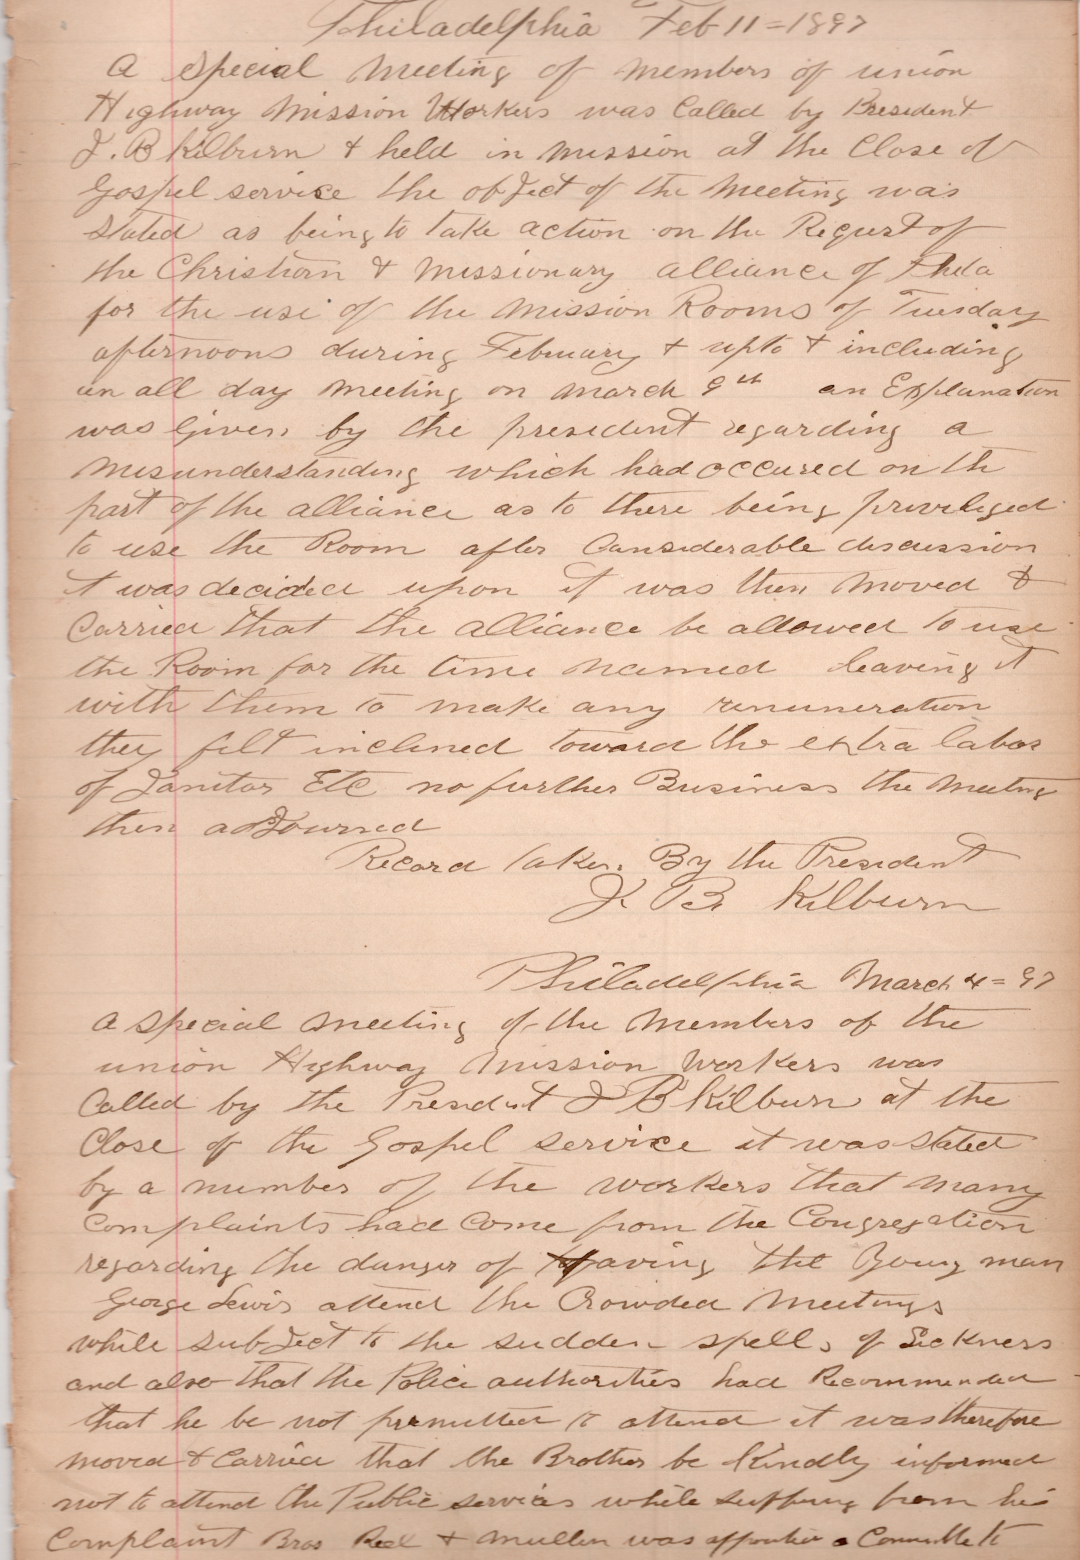 Philadelphia Feb 11 = 1897
A special Meeting of members of union
Highway Mission Workers was Called by President
J. B Kilburn & held in mission at the Close of
Gospel service the obJect of the Meeting was
stated as being to take action on the Request of
the Christian & Missionary alliance of Phila
for the use of the Mission Rooms of Tuesday
afternoons during February & upto & including
an all day Meeting on March 9th an Explanation
was Given by the president regarding a
Misunderstanding which had occured on the
part of the alliance as to there being privileged
to use the Room after Considerable discussion
it was decided upon it was then Moved &
Carried that the alliance be allowed to use
the Room for the time named leaving it
with them to make any renumeration
they felt inclined toward the extra labor
of Janitor Etc no further Business the Meeting
then adJourned
Record taken By the President
J. B. Kilburn
Philadelphia March 4 = 97
a special meeting of the Members of the
union Highway Mission Workers was
Called by the President J B Kilburn at the
Close of the Gospel service it was stated
by a number of the workers that many
Complaints had Come from the Congregation
regarding the danger of Having the Young man
George Lewis attend the Crowded Meetings
while subJect to the sudden spells of Sickness
and also that the Police authorities had Recommended
that he be not permitted to attend it was therefore
moved & Carried that the Brother be Kindly informed
not to attend the Public services while suffering from his
Complaint Bros & Mullen was appointed a Committe to